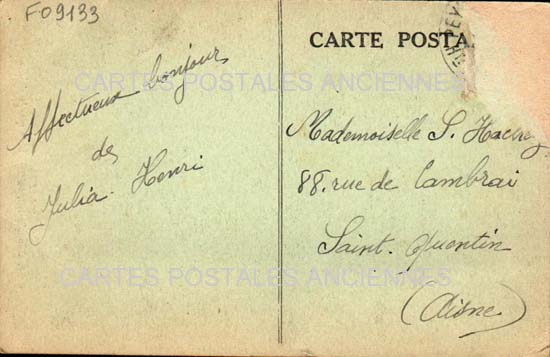 F09133
CARTE POSTA
Affectueux bonjour
de
Julia Henri
Mademoiselle S.
88. rue de Cambrai
Saint-Quentin
(Aisne)
CARTES POSTALES ANCIENNES
CARTES POSTALES ANCIENNES